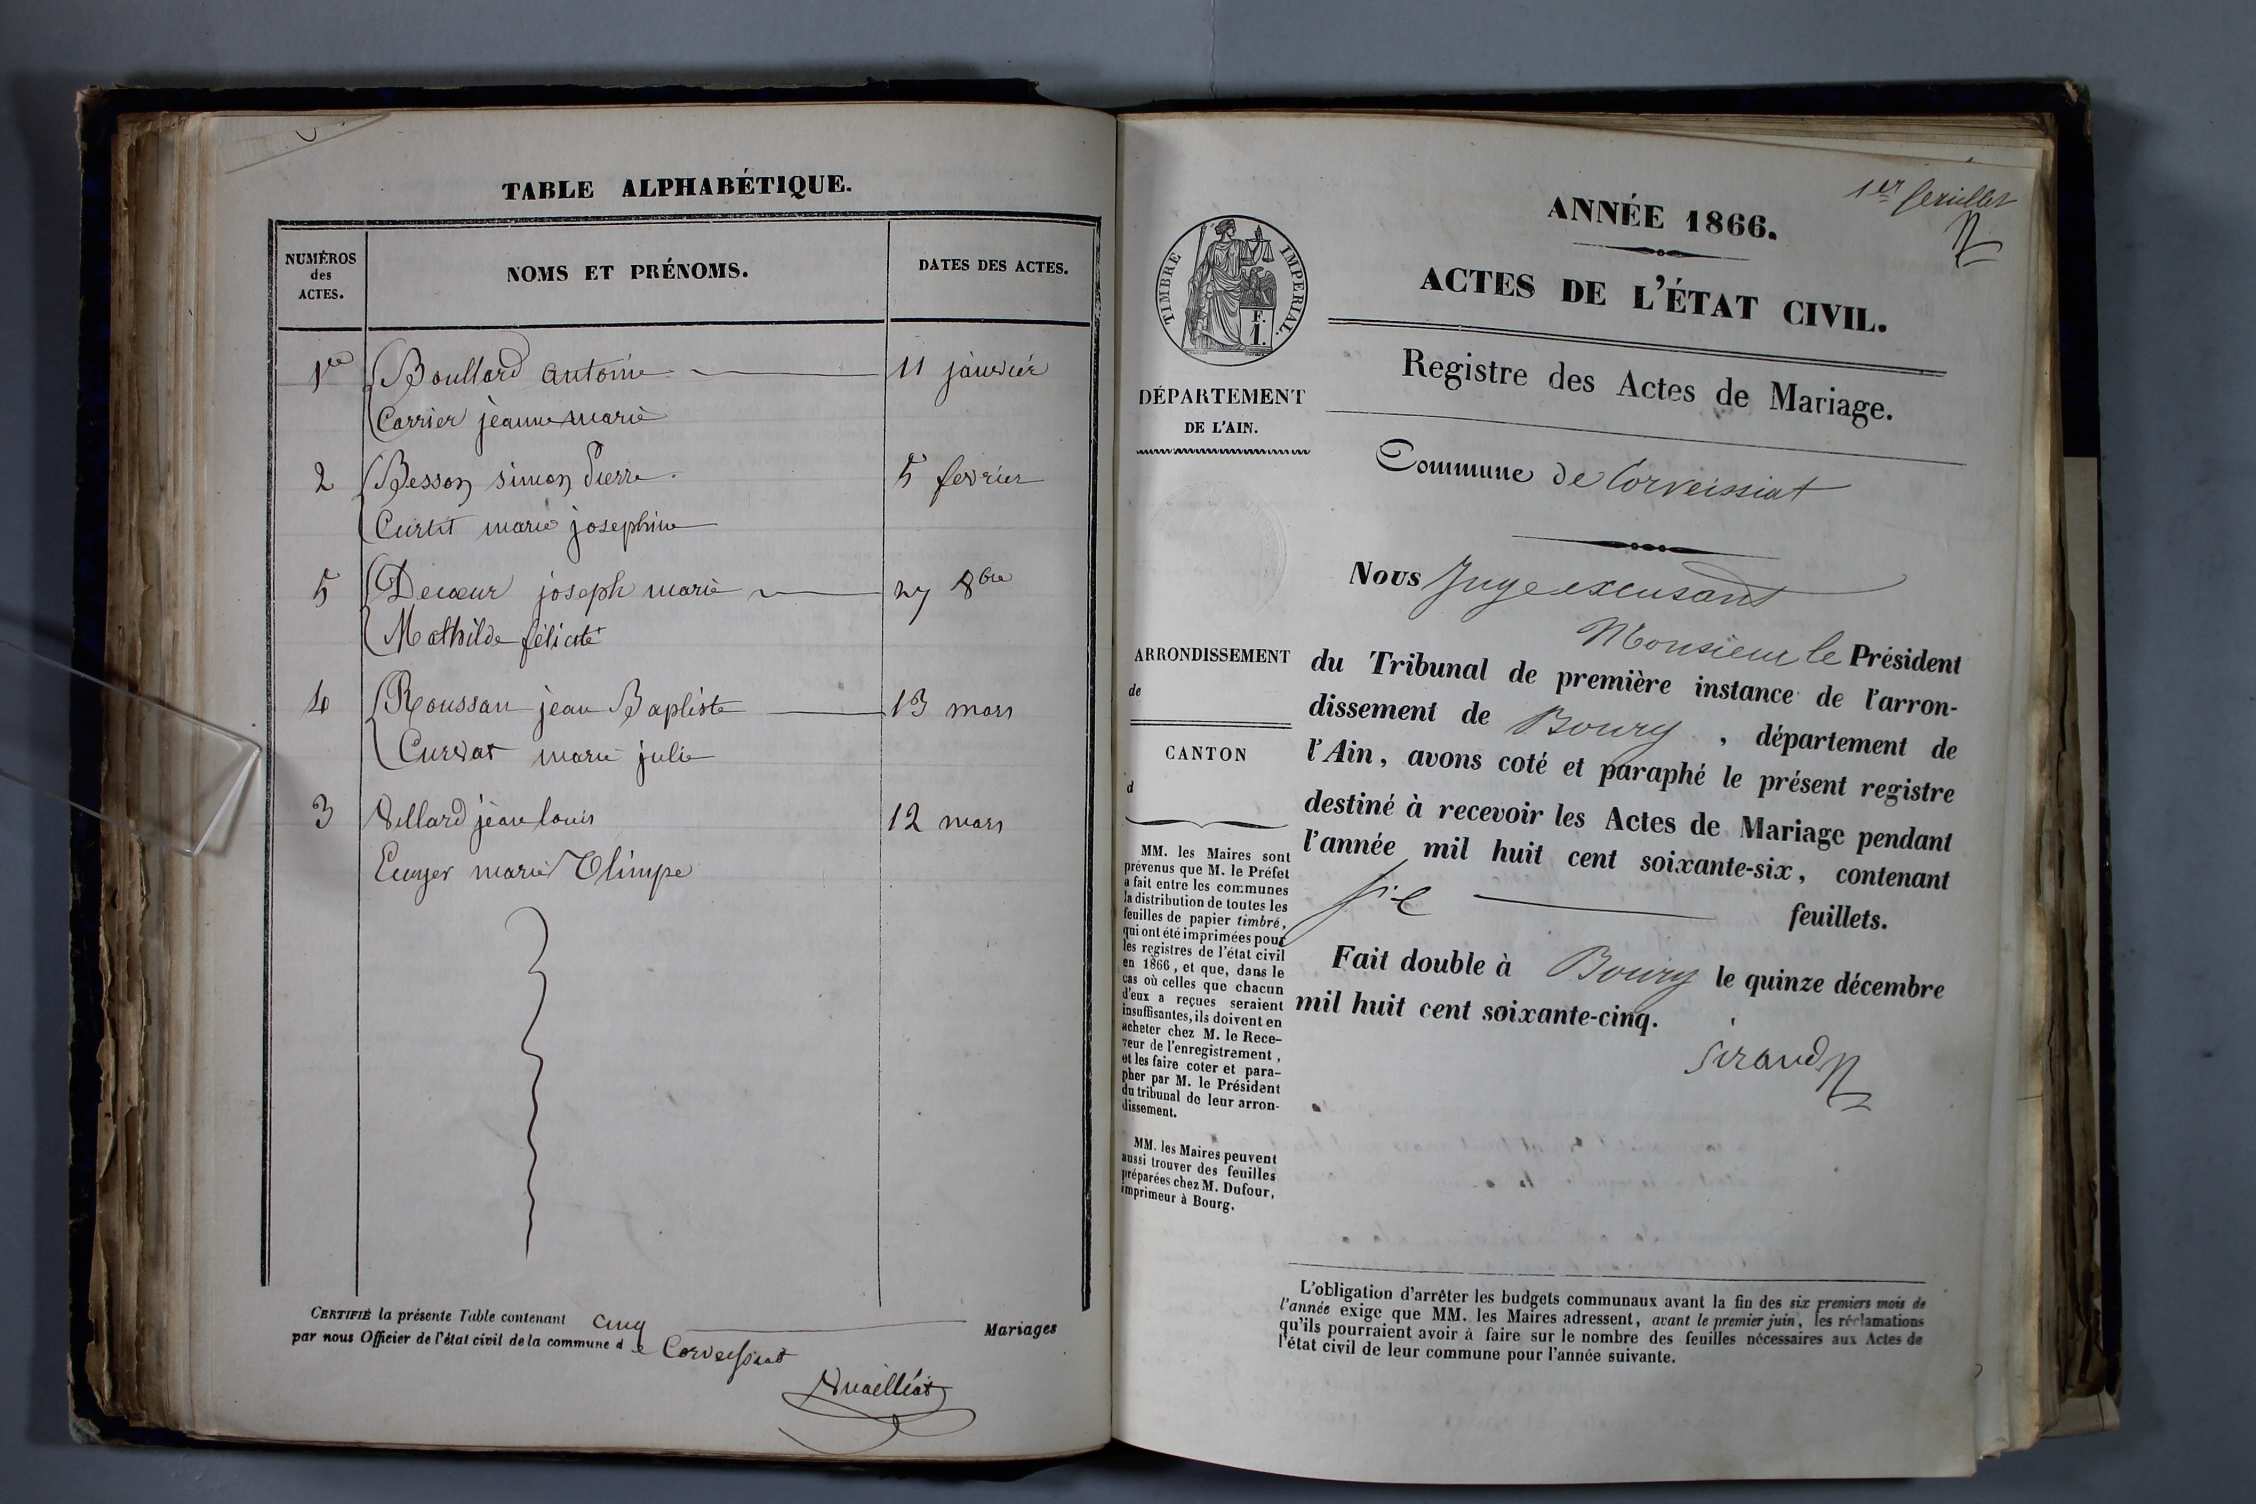 TABLE ALPHABÉTIQUE.
NUMÉROS
des
ACTES.
NOMS ET PRÉNOMS.
DATES DES ACTES.
1re Boullard antoine 11 janvier
Carrier jeanne marie
2 Besson simon Pierre 5 fevrier
Curtit marie josephine
5 Decœur joseph marie 27 8bre
Mathilde félicité
4 Roussau jean Baptiste 13 mars
Curvat marie julie
3 Villard jean louis 12 mars
Ecuyer marie Olimpe
CERTIFIÉ la présente Table contenant cinq Mariages
par nous Officier de l'état civil de la commune de Corveissiat
1er feuillet
ANNÉE 1866.
ACTES DE L'ÉTAT CIVIL.
Registre des Actes de Mariage.
TIMBRE IMPERIAL.
F.
1.
DÉPARTEMENT
DE L'AIN.
ARRONDISSEMENT
de
CANTON
d
MM. les Maires sont
prévenus que M. le Préfet
a fait entre les communes
la distribution de toutes les
feuilles de papier timbré,
qui ont été imprimées pour
les registres de l'état civil
en 1866, et que, dans le
cas où celles que chacun
d'eux a reçues seraient
insuffisantes, ils doivent en
acheter chez M. le Rece-
veur de l'enregistrement,
et les faire coter et para-
pher par M. le Président
du tribunal de leur arron-
dissement.
MM. les Maires peuvent
aussi trouver des feuilles
préparées chez M. Dufour,
imprimeur à Bourg.
Commune de Corveissiat
Nous Juge excusant
Monsieur le Président
du Tribunal de première instance de l'arron-
dissement de Bourg, département de
l'Ain, avons coté et paraphé le présent registre
destiné à recevoir les Actes de Mariage pendant
l'année mil huit cent soixante-six, contenant
feuillets.
Fait double à Bourg le quinze décembre
mil huit cent soixante-cinq.
Sirand
L'obligation d'arrêter les budgets communaux avant la fin des six premiers mois de
l'année exige que MM. les Maires adressent, avant le premier juin, les réclamations
qu'ils pourraient avoir à faire sur le nombre des feuilles nécessaires aux Actes de
l'état civil de leur commune pour l'année suivante.